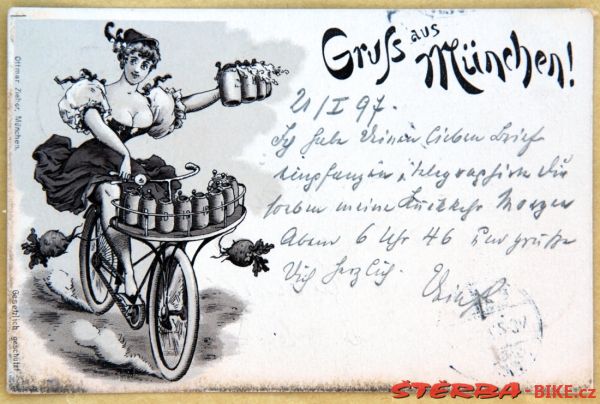 Gruss aus München!
21/I 97.
Ich habe Deinen lieben Brief
empfangen & telegraphire Dir
soeben meine Rückkehr Morgen
Abend 6 Uhr 46 und grüße
Dich herzlich.
Ottmar Zieher, München.
Gesetzlich geschützt
STERBA-BIKE.cz